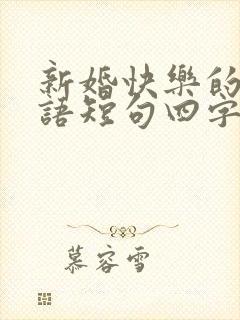 新婚快樂的
語短句四字
慕容雪